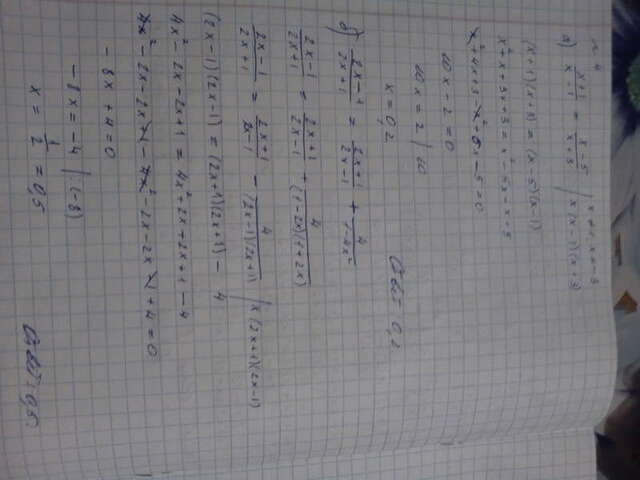 N 4
а) (x+1)/(x-1) = (x-5)/(x+3) | x (x-1)(x+3)
(x+1)(x+3) = (x-5)(x-1)
x²+x+3x+3 = x²-5x-x+5
x²+4x+3-x²+6x-5=0
10x-2=0
10x=2 | :10
x=0,2
Ответ: 0,2
б) (2x-1)/(2x+1) = (2x+1)/(2x-1) + 4/(1-4x²)
(2x-1)/(2x+1) = (2x+1)/(2x-1) + 4/((1-2x)(1+2x))
(2x-1)/(2x+1) = (2x+1)/(2x-1) - 4/((2x-1)(2x+1)) | x (2x+1)(2x-1)
(2x-1)(2x-1) = (2x+1)(2x+1) - 4
4x²-2x-2x+1 = 4x²+2x+2x+1-4
4x²-2x-2x+1-4x²-2x-2x-1+4=0
-8x+4=0
-8x=-4 | :(-8)
x = 1/2 = 0,5
Ответ: 0,5.